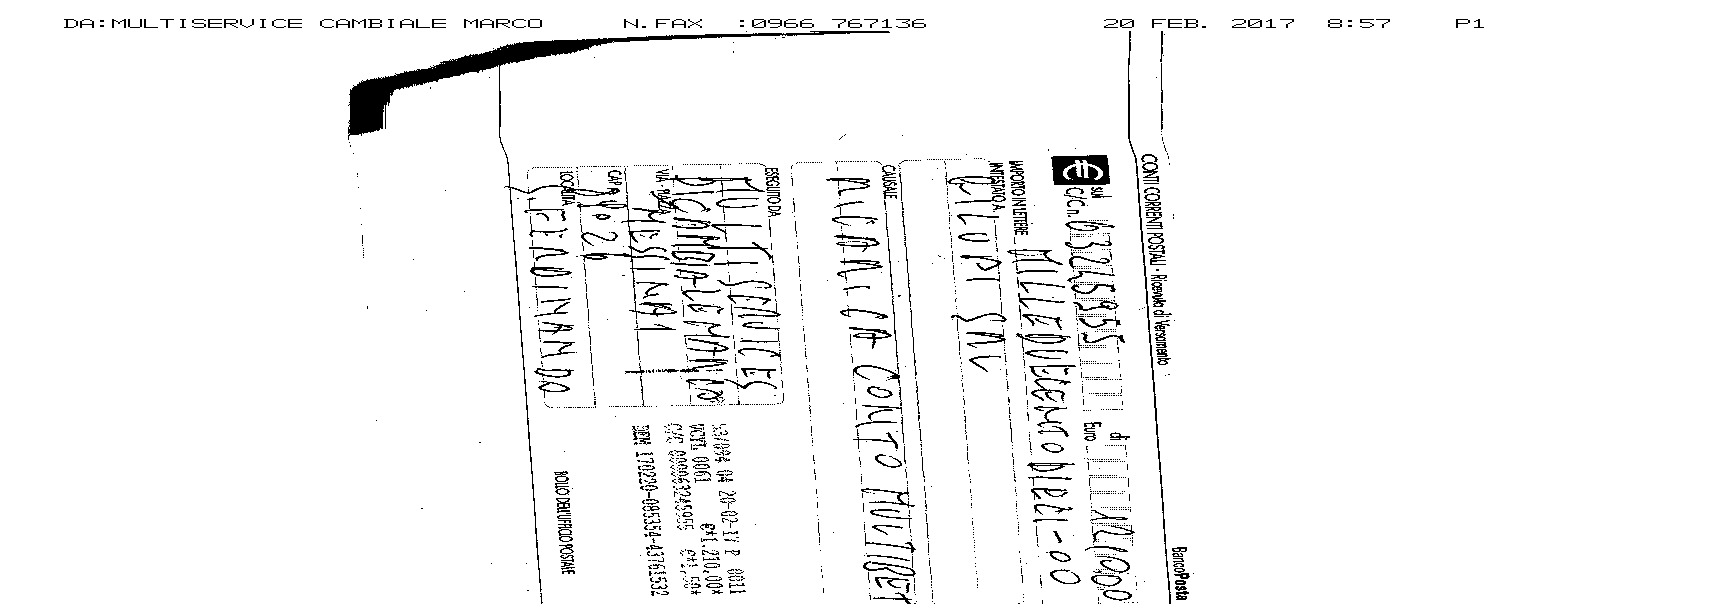 DA:MULTISERVICE CAMBIALE MARCO N.FAX :0966 767136 20 FEB. 2017 8:57 P1
CONTI CORRENTI POSTALI - Ricevuta di Versamento BancoPosta
sul C/C n. 63245955 di Euro
IMPORTO IN LETTERE MILLEDUECENTODIECI-00
INTESTATO A
BILOPI SRL
CAUSALE
RICARICA CONTO MULTIBET
ESEGUITO DA
MULTI SERVICES
DI CAMBIALE MARCO
VIA - PIAZZA MESSINA 1
CAP 89026
LOCALITÀ
S FERDINANDO
43/094 04 20-02-17 P 0011
VCYL 0061 €*1.210,00*
C/C 000063245955 €*1,50*
BOLLO DELL'UFFICIO POSTALE